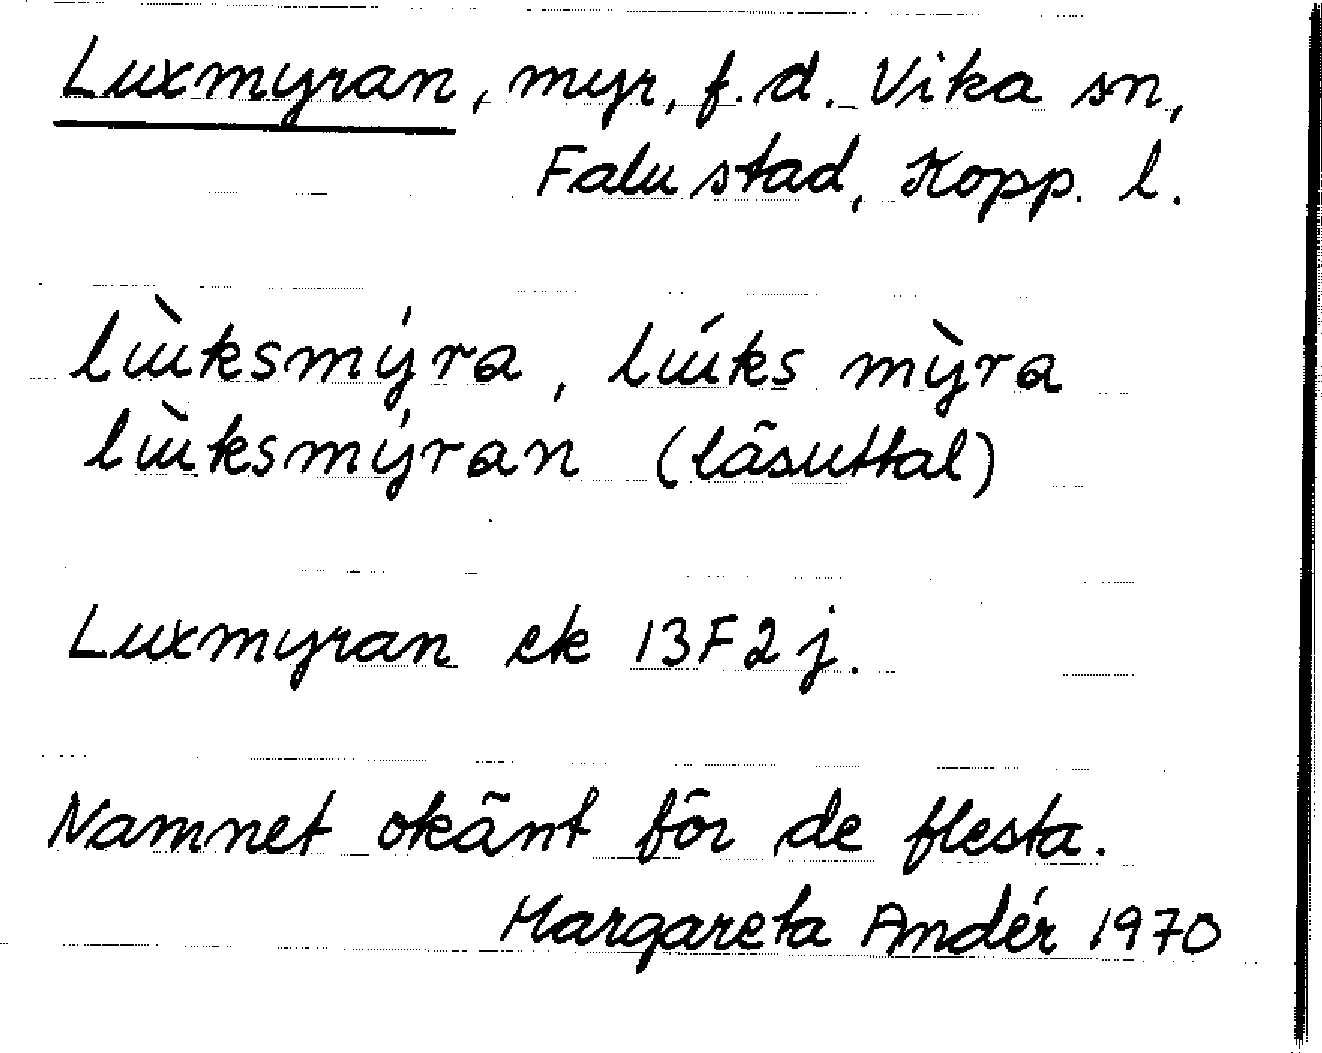 Luxmyran, myr, f.d. Vika sn,
Falu stad, Kopp. l.
lɯ̀ksmýra, lɯ́ks mỳra
lɯ̀ksmýran (läsuttal)
Luxmyran ek 13F2j.
Namnet okänt för de flesta.
Margareta Andér 1970